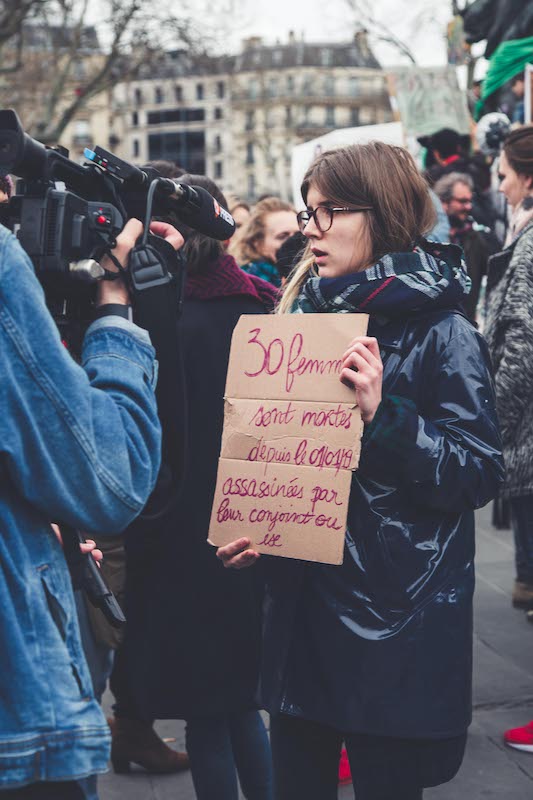 30 femm
sont mortes
depuis le 01/01/19
assassinées par
leur conjoint ou